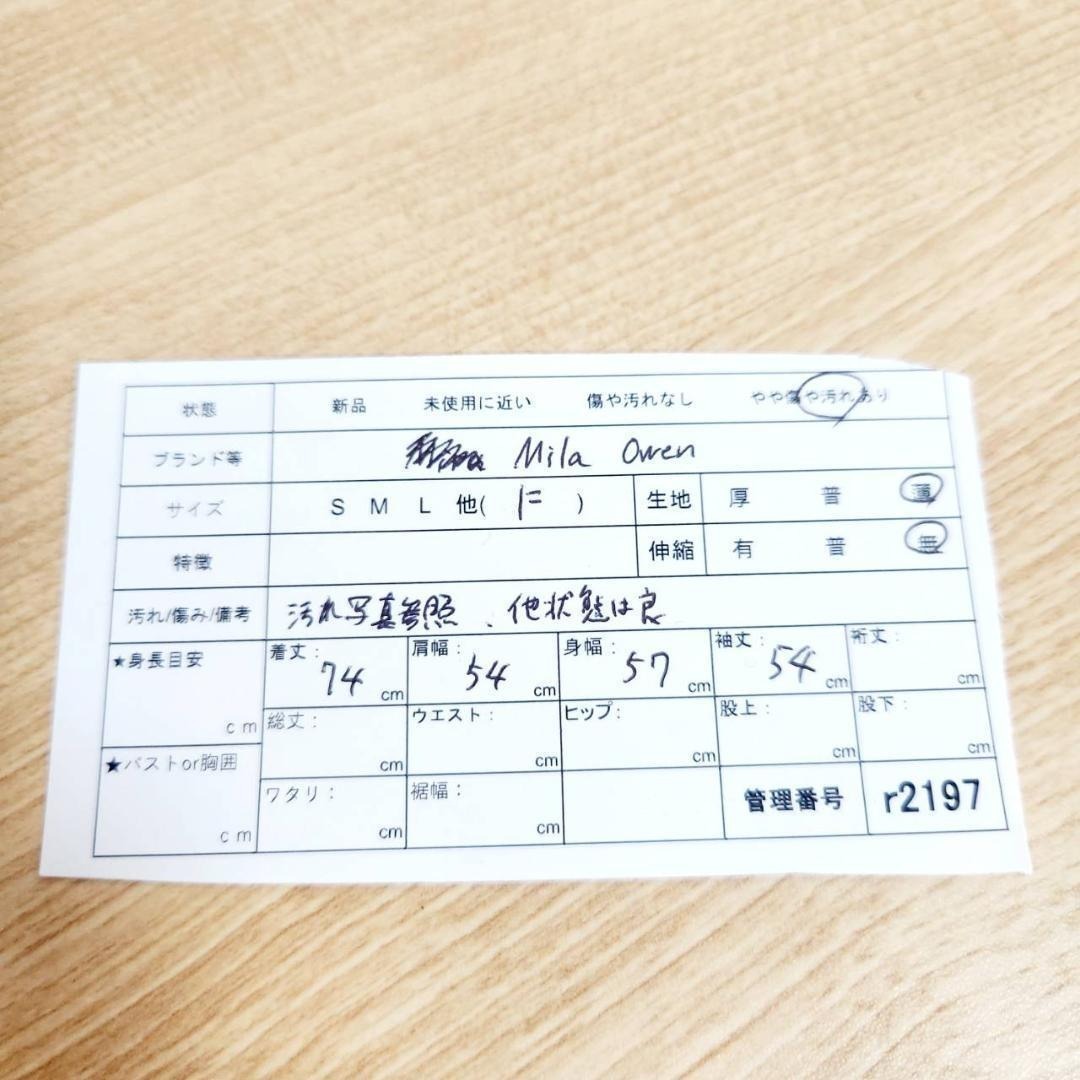 状態 新品 未使用に近い 傷や汚れなし やや傷や汚れあり
ブランド等 Mila Owen
サイズ S M L 他( F ) 生地 厚 普 薄
特徴 伸縮 有 普 無
汚れ/傷み/備考 汚れ写真参照、他状態は良
★身長目安 cm 着丈: 74 cm 肩幅: 54 cm 身幅: 57 cm 袖丈: 54 cm 裄丈: cm
総丈: cm ウエスト: cm ヒップ: cm 股上: cm 股下: cm
★バストor胸囲 cm ワタリ: cm 裾幅: cm 管理番号 r2197